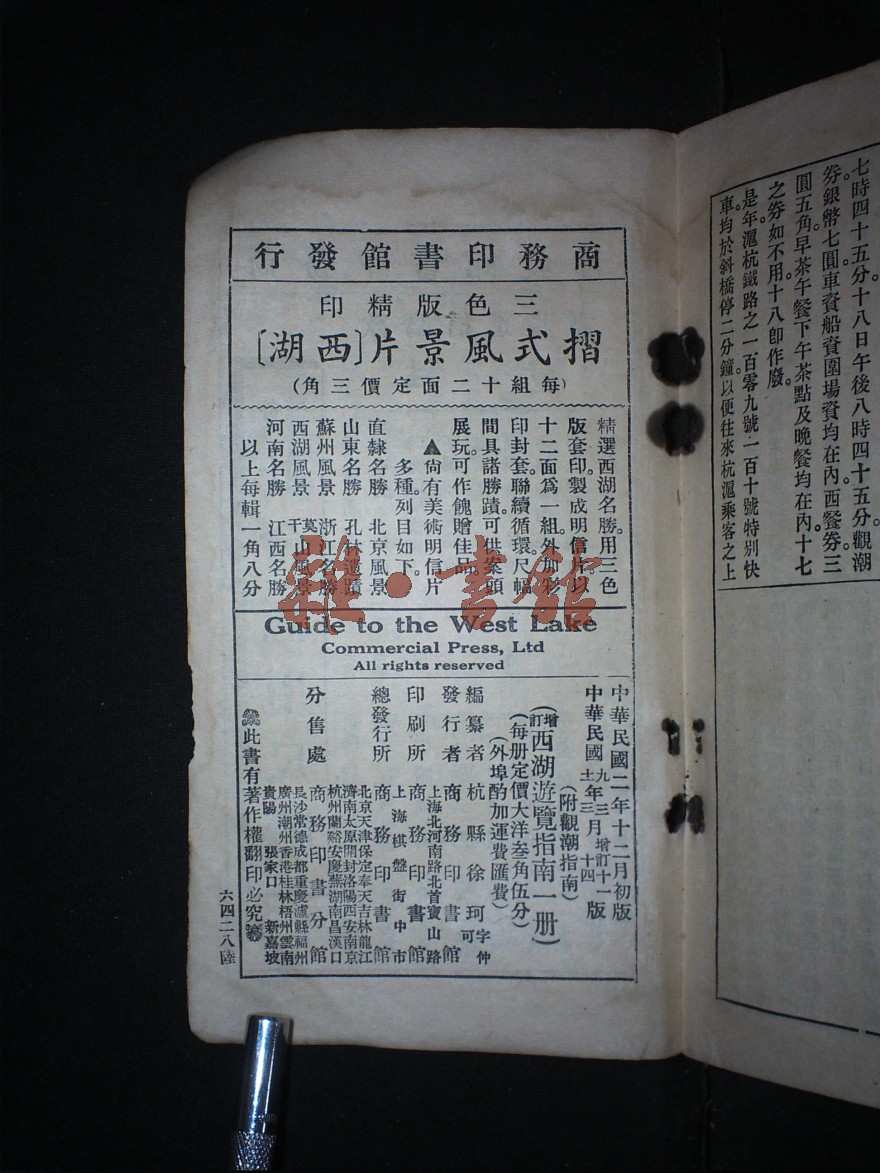 七時四十五分。十八日午後八時四十五分。觀潮
券。銀幣七圓。車資船資圍場資均在內。西餐券三
圓五角。早茶午餐下午茶點及晚餐均在內。十七
之券如不用。十八卽作廢。
是年滬杭鐵路之一百零九號一百十號特別快
車。均於斜橋停二分鐘。以便往來杭滬乘客之上
商務印書館發行
三色版精印
摺式風景片〔西湖〕
(每組十二面定價三角)
精選西湖名勝。用三色
版套印。製成明信片。以
十二面爲一組。外加彩
印封套。聯續循環。尺幅
間具諸勝蹟。可供案頭
展玩。可作餽贈佳品。
▲尙有美術明信片
多種。列目如下。
直隸名勝 北京風景
山東名勝 孔林遺蹟
蘇州風景 浙江名勝
西湖風景 莫干山風景
河南名勝 江西名勝
以上每輯一角八分
雜·書館
Guide to the West Lake
Commercial Press, Ltd
All rights reserved
中華民國二年十二月初版
中華民國九年三月增訂十一版
十三 十四
(附觀潮指南)
(增訂西湖遊覽指南一册)
(每册定價大洋叁角伍分)
(外埠酌加運費匯費)
編纂者 杭縣徐珂 字仲可
發行者 商務印書館
印刷所 上海北河南路北首寶山路 商務印書館
總發行所 上海棋盤街中市 商務印書館
分售處 北京天津保定奉天吉林龍江
濟南太原開封洛陽西安南京
杭州蘭谿安慶蕪湖南昌漢口
商務印書分館
長沙常德成都重慶瀘縣福州
廣州潮州香港桂林梧州雲南
貴陽 張家口 新嘉坡
此書有著作權翻印必究
六四二八陸